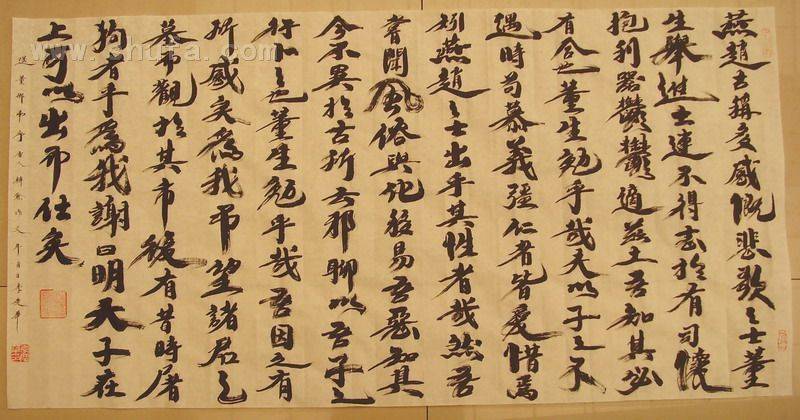 燕趙古稱多感慨悲歌之士董
生舉進士連不得志於有司懷
抱利器鬱鬱適茲土吾知其必
有合也董生勉乎哉夫以子之不
遇時苟慕義彊仁者皆愛惜焉
矧燕趙之士出乎其性者哉然吾
嘗聞風俗與化移易吾惡知其
今不異於古所云邪聊以吾子之
行卜之也董生勉乎哉吾因之有
所感矣為我弔望諸君之
墓而觀於其市復有昔時屠
狗者乎為我謝曰明天子在
上可以出而仕矣
送董邵南序唐人韓愈作文